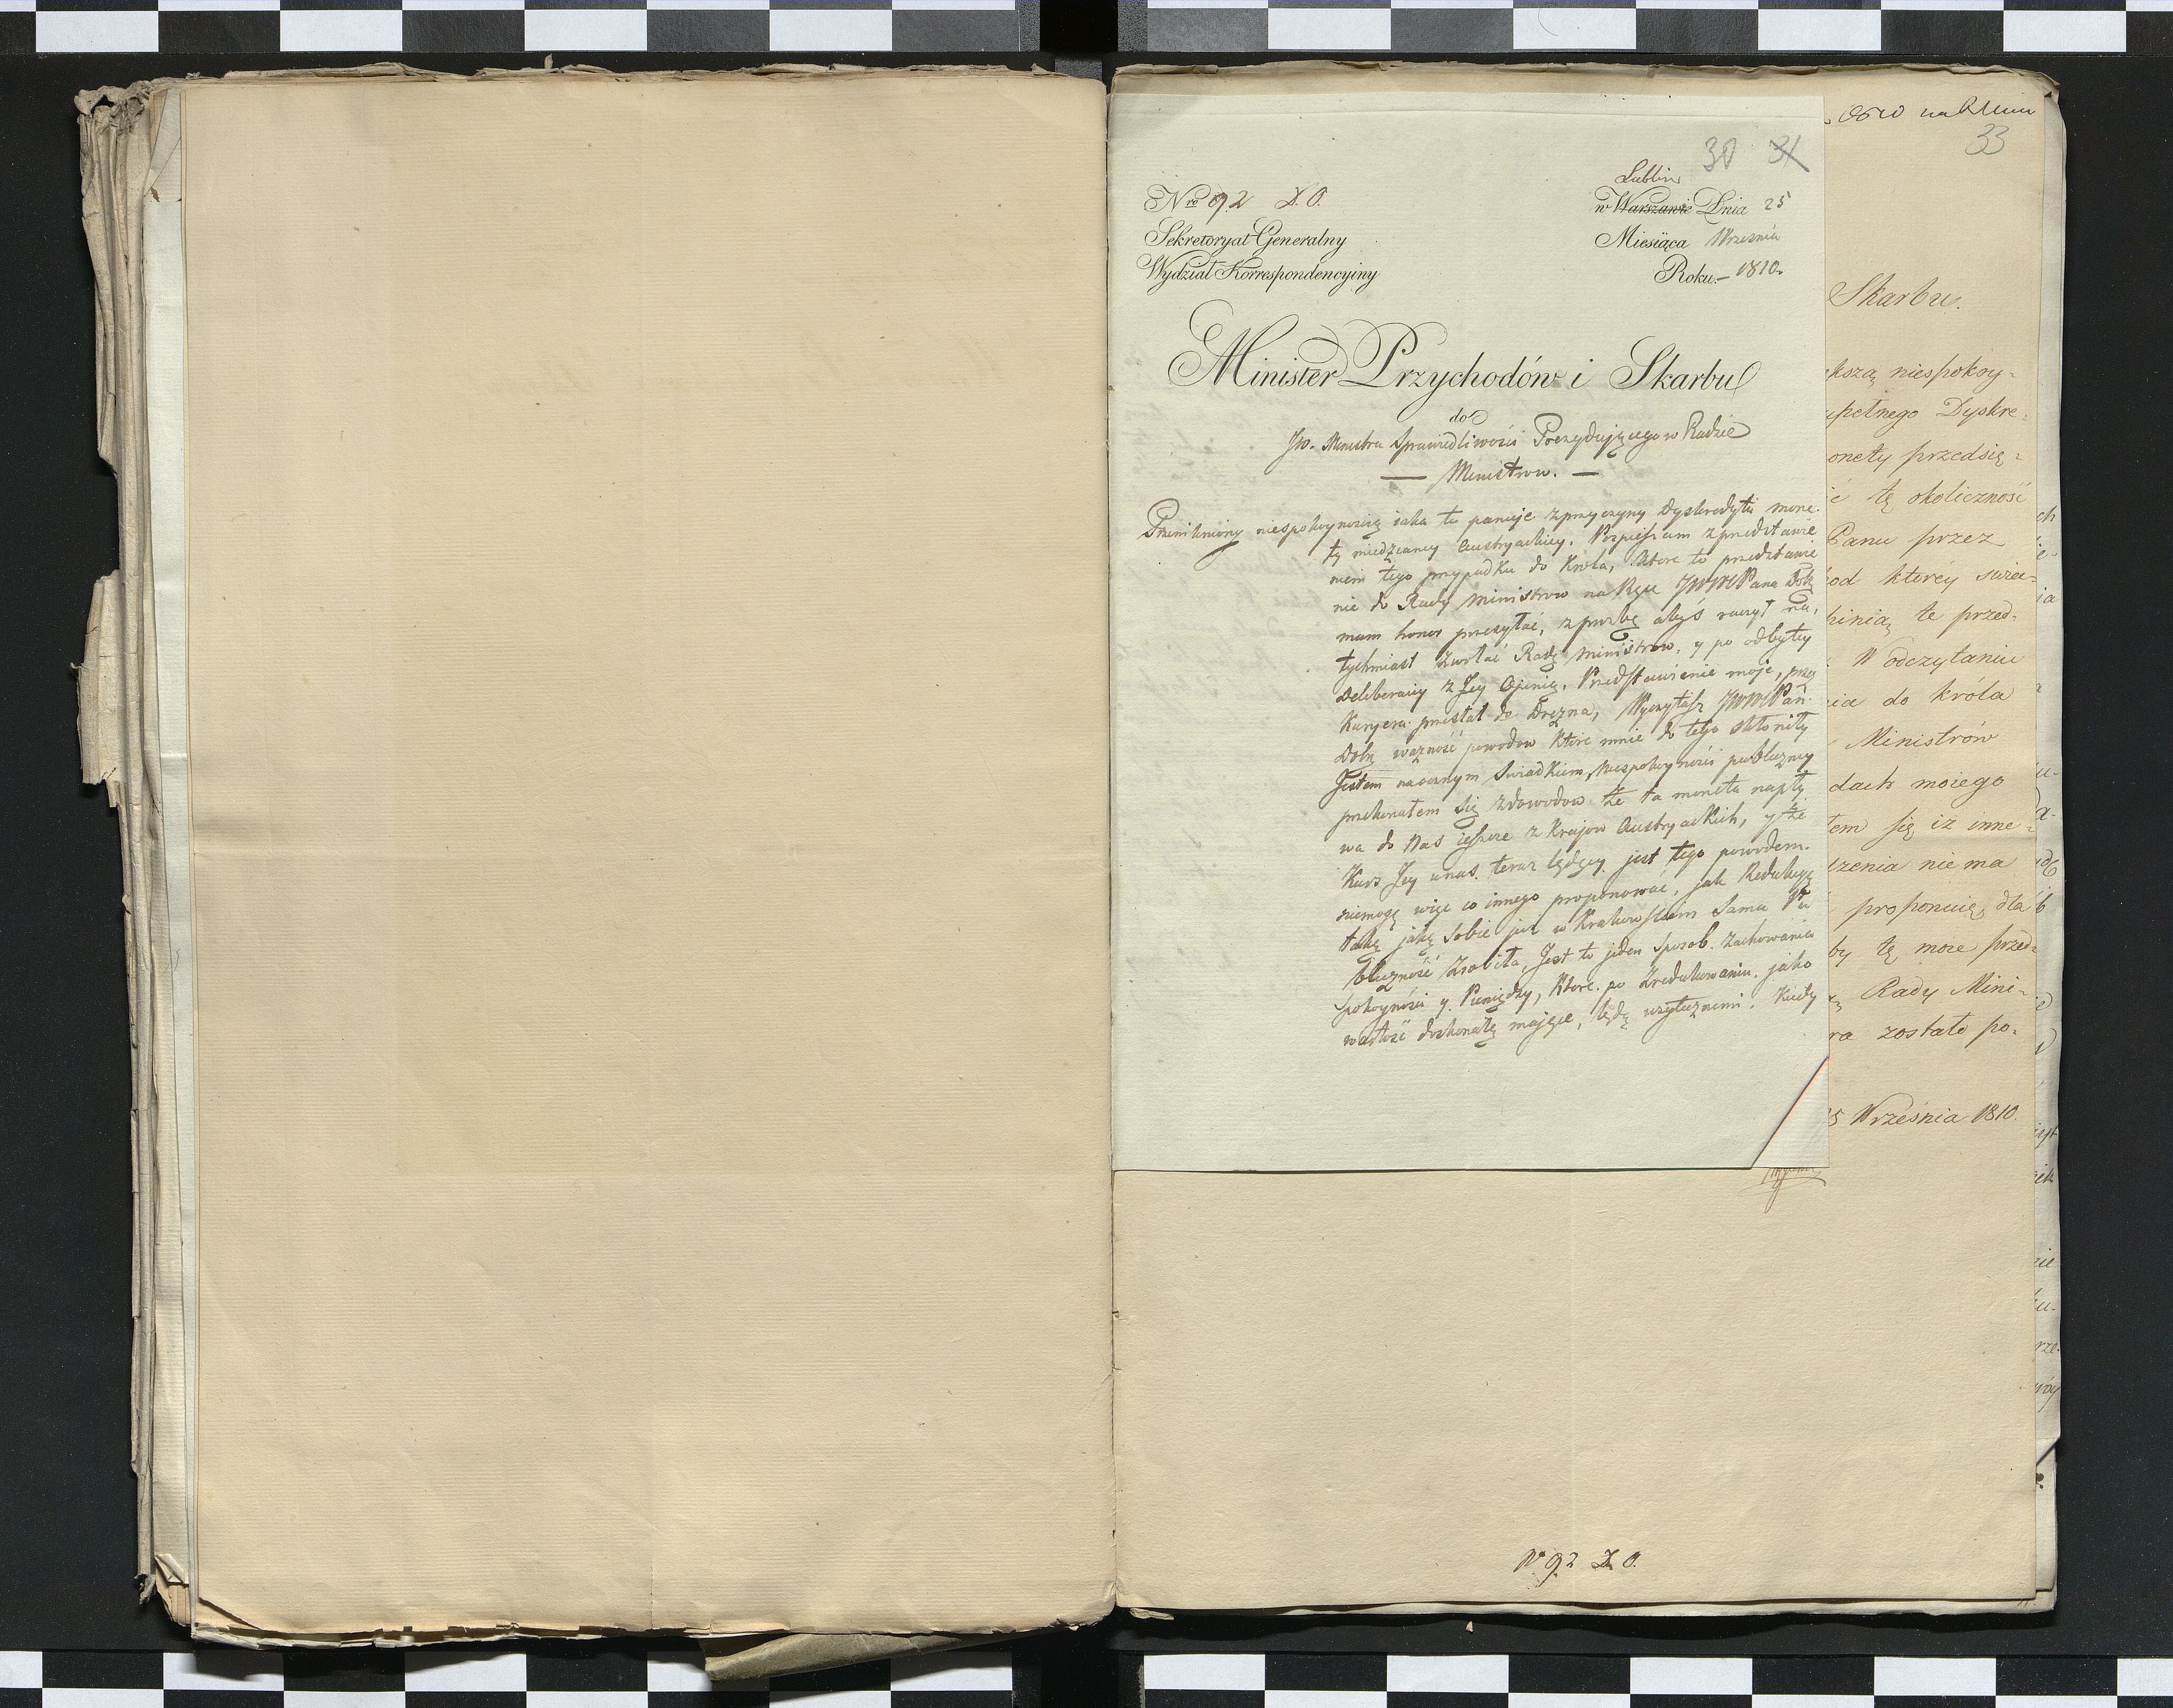 30 31
Nro 92 D.O.
Lublin
w Warszawie Dnia 25
Sekretoryat Generalny
Miesiąca Września
Wydział Korrespondencyiny
Roku 1810.
Minister Przychodów i Skarbu
do
JW. Ministra Sprawiedliwości Prezydującego w Radzie
— Ministrow. —
Przeniknióny niespokoynością iaka tu panuje z przyczyny Dyskredytu mone-
ty miedzianey Austryackiey. Pospieszam z przedstawie
niem tego przypadku do Krola, ktore to przedstawie
nie do Rady Ministrow na Ręce JWWPana Dobr
mam honor przesyłać, z proźbą abyś raczył na,
tychmiast zwołać Radę Ministrow, y po odbytey
Deliberacyi z Jey Opinią, Przedstawienie moje, przez
Kuryera przesłał do Drezna, Wyczytasz JWWPan
Dobr ważność powodow ktore mnie do tego skłoniły
Jestem naocznym Swiadkiem, Niespokoyności publiczney
przekonałem się z dowodow że ta moneta napły
wa do Nas ieszcze z Krajow Austryackich, y że
Kurs Jey u nas teraz będący jest tego powodem.
niemogę więc co innego proponować, jak Redukcyą
taką jaką sobie już w Krakowskim Sama Pu
bliczność zrobiła, Jest to jeden sposob zachowania
spokoyności y Pieniędzy, ktore po zredukowaniu jako
wartość doskonałą mające, będą użytecznemi. Kiedy
33
Skarbu.
kszą niespokoy-
upełnego Dyskre-
onety przedsię-
ić tę okoliczność
Panu przez
od którey swia-
pinią te przed-
W odczytaniu
nia do króla
Ministrów
dach moiego
łem się iż inne-
dzenia nie ma
proponuię, dla
by tę moie przed-
ą Rady Mini-
ra zostało po-
25 Września 1810.
No 92 D.O.